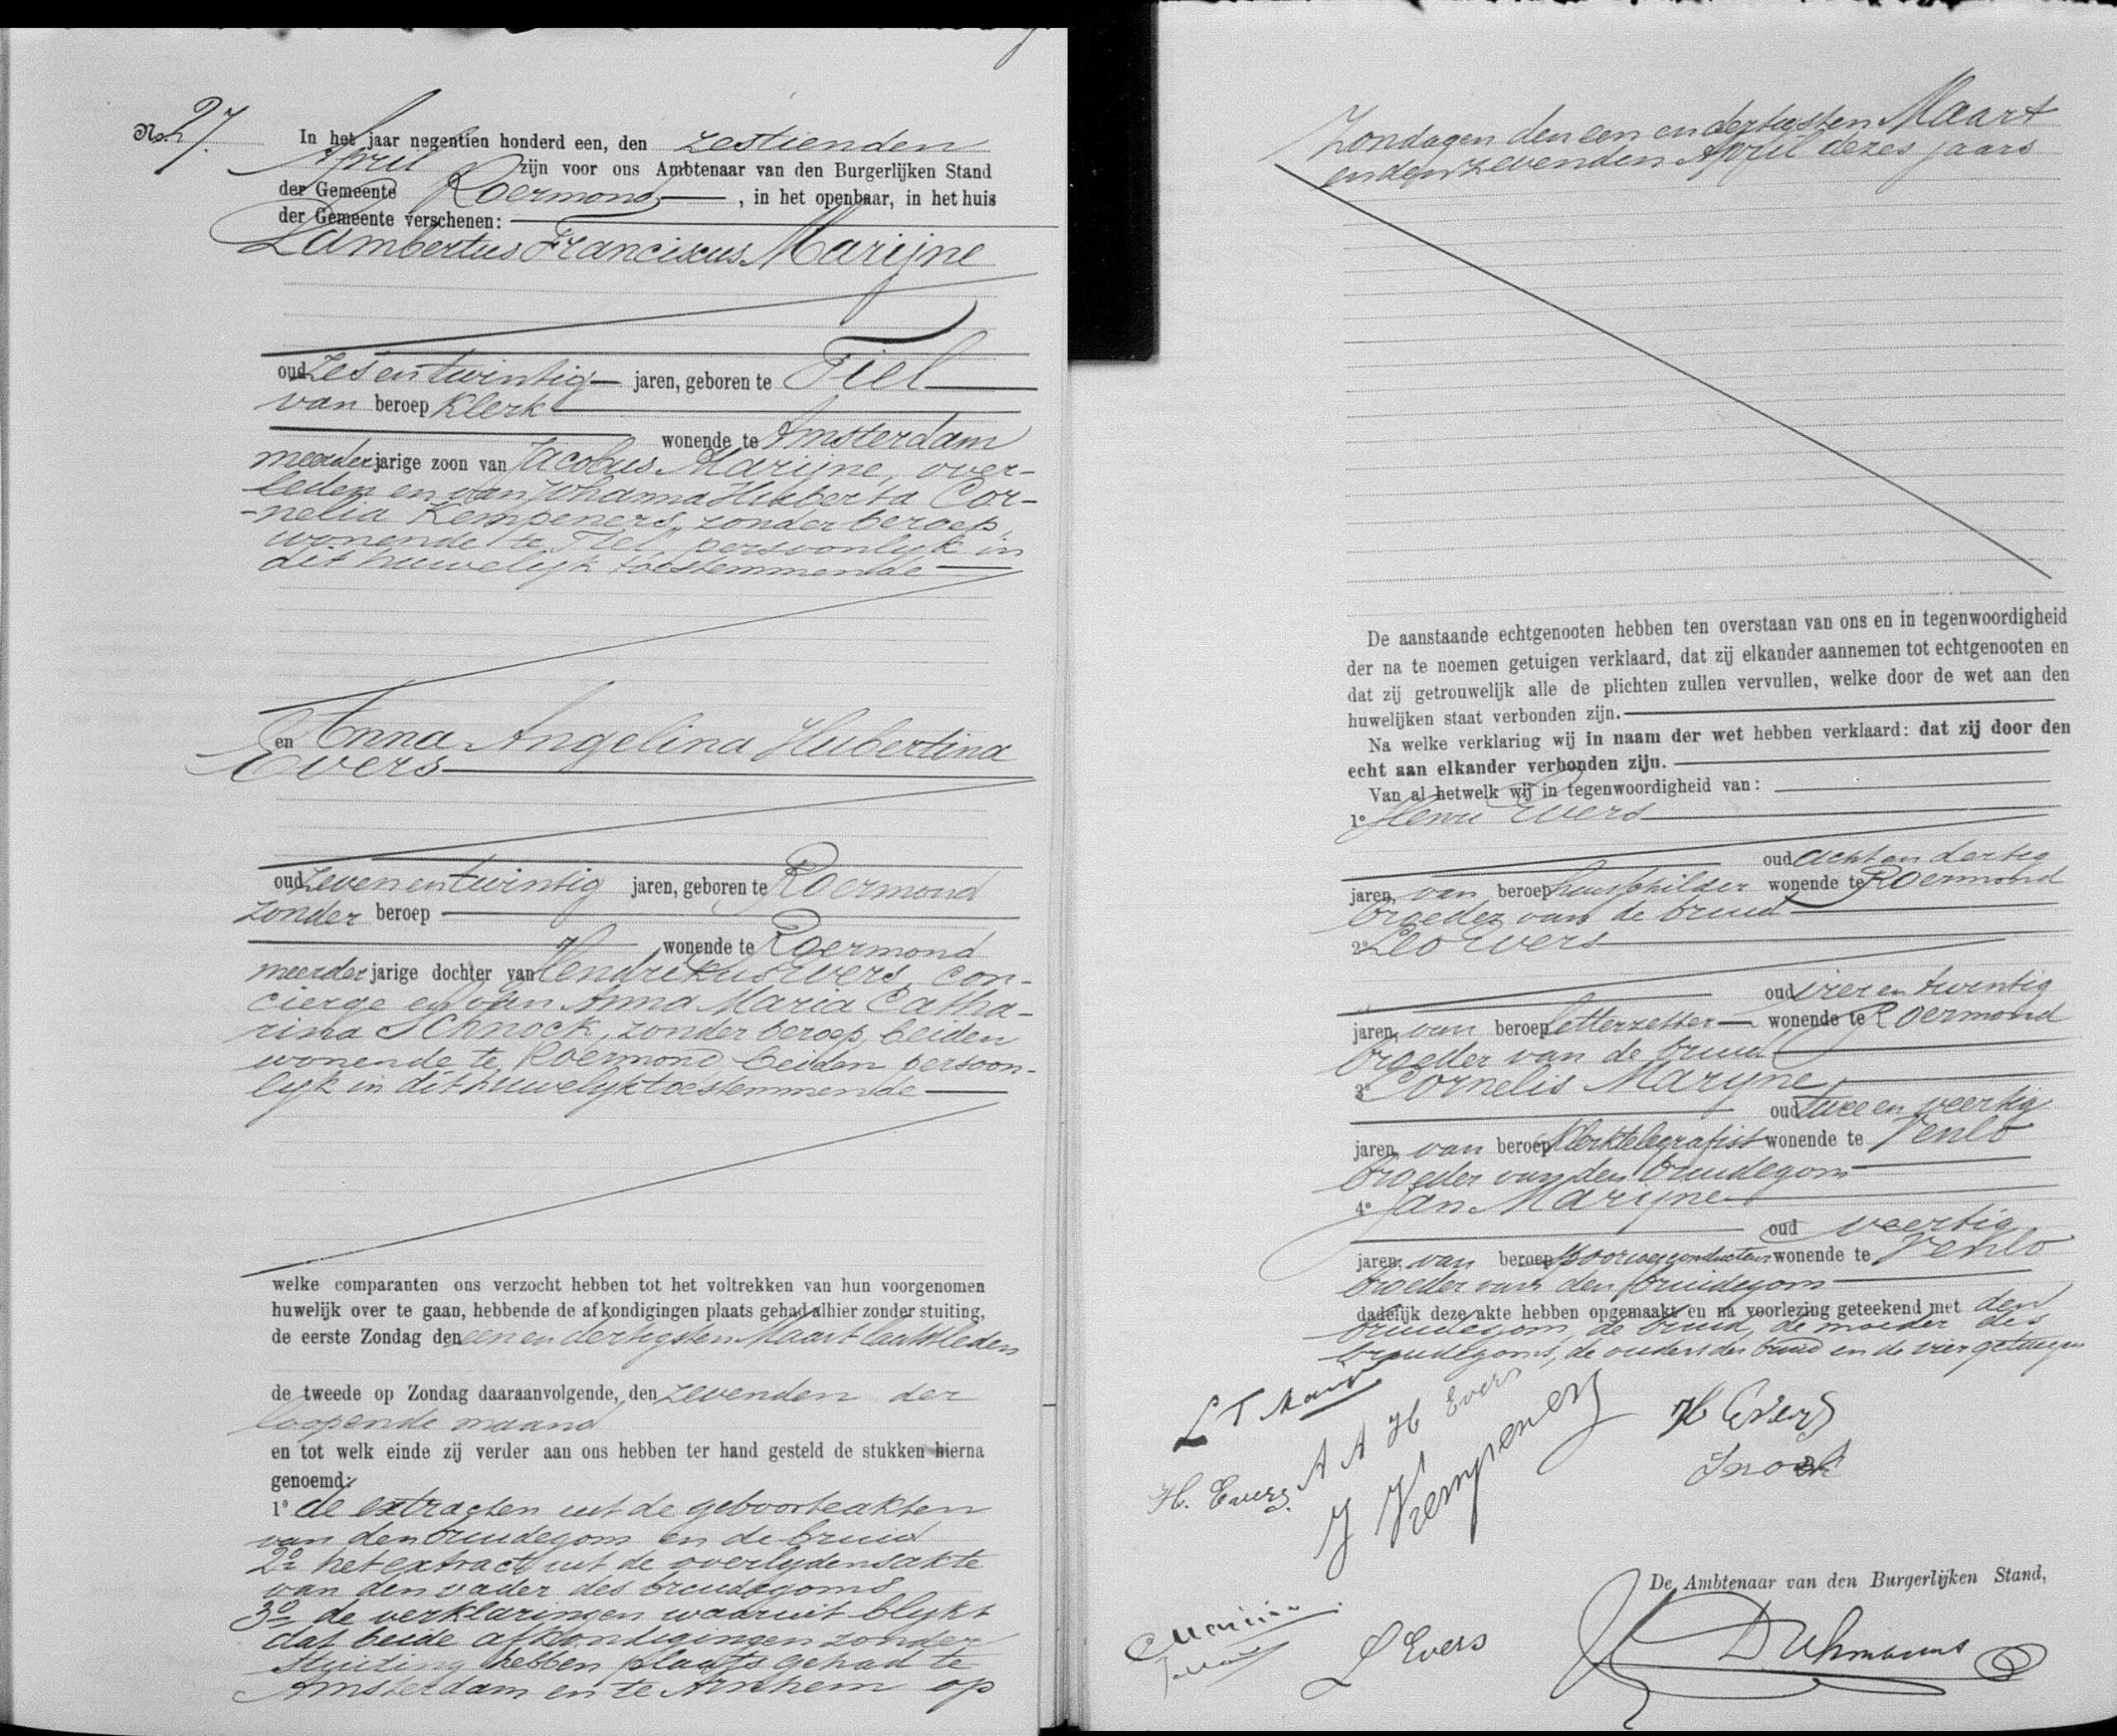 No. 27.
In het jaar negentien honderd een, den zestienden
April zijn voor ons Ambtenaar van den Burgerlijken Stand
der Gemeente Roermond, in het openbaar, in het huis
der Gemeente verschenen:
Lambertus Franciscus Marijne
oud zes en twintig jaren, geboren te Tiel
van beroep klerk
wonende te Amsterdam
meerderjarige zoon van Jacobus Marijne, over-
leden en van Johanna Huberta Cor-
-nelia Kempeners, zonder beroep,
wonende te Tiel, persoonlijk in
dit huwelijk toestemmende
en Anna Angelina Hubertina
Evers
oud zeven en twintig jaren, geboren te Roermond
zonder beroep
wonende te Roermond
meerderjarige dochter van Hendrikus Evers, con-
cierge en van Anna Maria Catha-
rina Schnock, zonder beroep, beiden
wonende te Roermond, beiden persoon-
lijk in dit huwelijk toestemmende
welke comparanten ons verzocht hebben tot het voltrekken van hun voorgenomen
huwelijk over te gaan, hebbende de afkondigingen plaats gehad alhier zonder stuiting,
de eerste Zondag den een en dertigsten Maart laatstleden
de tweede op Zondag daaraanvolgende, den zevenden der
loopende maand
en tot welk einde zij verder aan ons hebben ter hand gesteld de stukken hierna
genoemd:
1° de extracten uit de geboorteakten
van den bruidegom en de bruid
2° het extract uit de overlijdensakte
van den vader des bruidegoms
3° de verklaringen waaruit blijkt
dat beide afkondigingen zonder
stuiting hebben plaats gehad te
Amsterdam en te Arnhem op
Zondagen den een en dertigsten Maart
en den zevenden April dezes jaars
De aanstaande echtgenooten hebben ten overstaan van ons en in tegenwoordigheid
der na te noemen getuigen verklaard, dat zij elkander aannemen tot echtgenooten en
dat zij getrouwelijk alle de plichten zullen vervullen, welke door de wet aan den
huwelijken staat verbonden zijn.
Na welke verklaring wij in naam der wet hebben verklaard: dat zij door den
echt aan elkander verbonden zijn.
Van al hetwelk wij in tegenwoordigheid van:
1° Henri Evers
oud acht en dertig
jaren, van beroep huisschilder wonende te Roermond
broeder van de bruid
2° Leo Evers
oud vier en twintig
jaren, van beroep letterzetter wonende te Roermond
broeder van de bruid
3° Cornelis Maryne,
oud twee en veertig
jaren, van beroep klerktelegrafist wonende te Venlo
broeder van den bruidegom
4° Jan Marijne
oud veertig
jaren, van beroep spoorwegconducteur wonende te Venlo
broeder van den bruidegom
dadelijk deze akte hebben opgemaakt en na voorlezing geteekend met den
bruidegom, de bruid, de moeder des
bruidegoms, de ouders der bruid en de vier getuigen
A A H Evers
H Evers
H. Evers.
J Kempeners
Snoek
De Ambtenaar van den Burgerlijken Stand,
L Evers